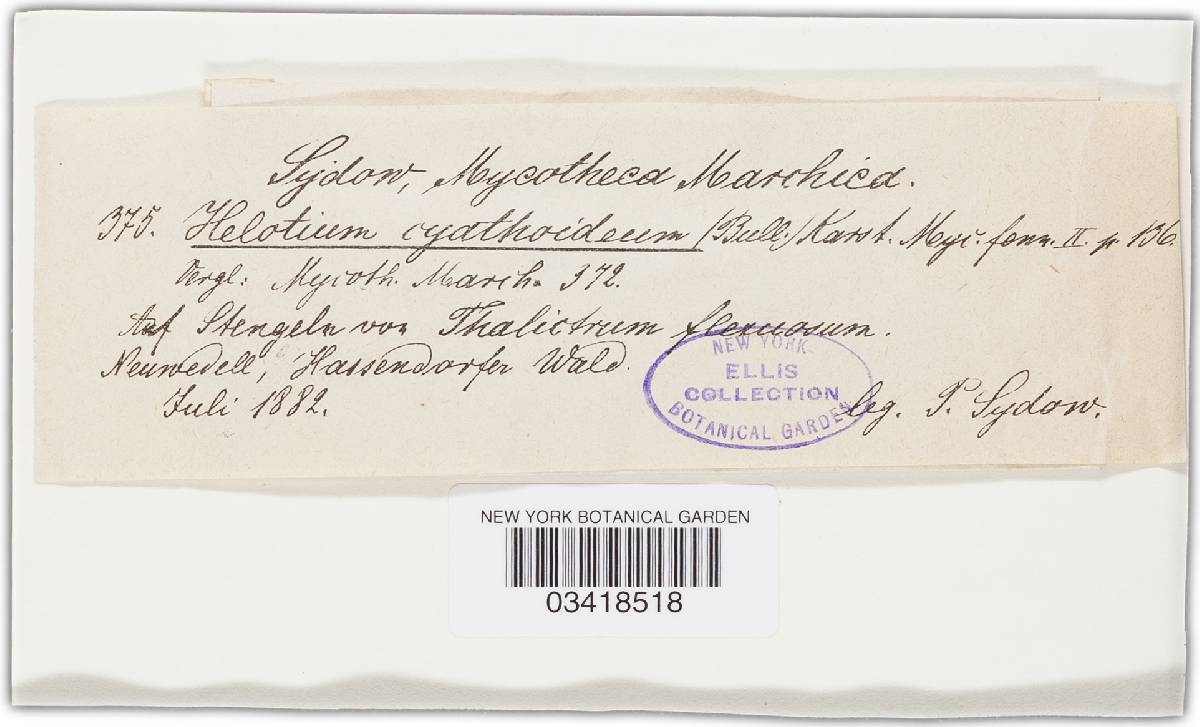 Sydow, Mycotheca Marchica.
375. Helotium cyathoideum (Bull.) Karst. Myc. fenn. II. p. 136.
Vergl: Mycoth. March. 372.
Auf Stengeln von Thalictrum flexuosum.
Neuwedell, Hassendorfer Wald.
Juli 1882.
leg. P. Sydow.
NEW YORK
ELLIS
COLLECTION
BOTANICAL GARDEN
NEW YORK BOTANICAL GARDEN
03418518